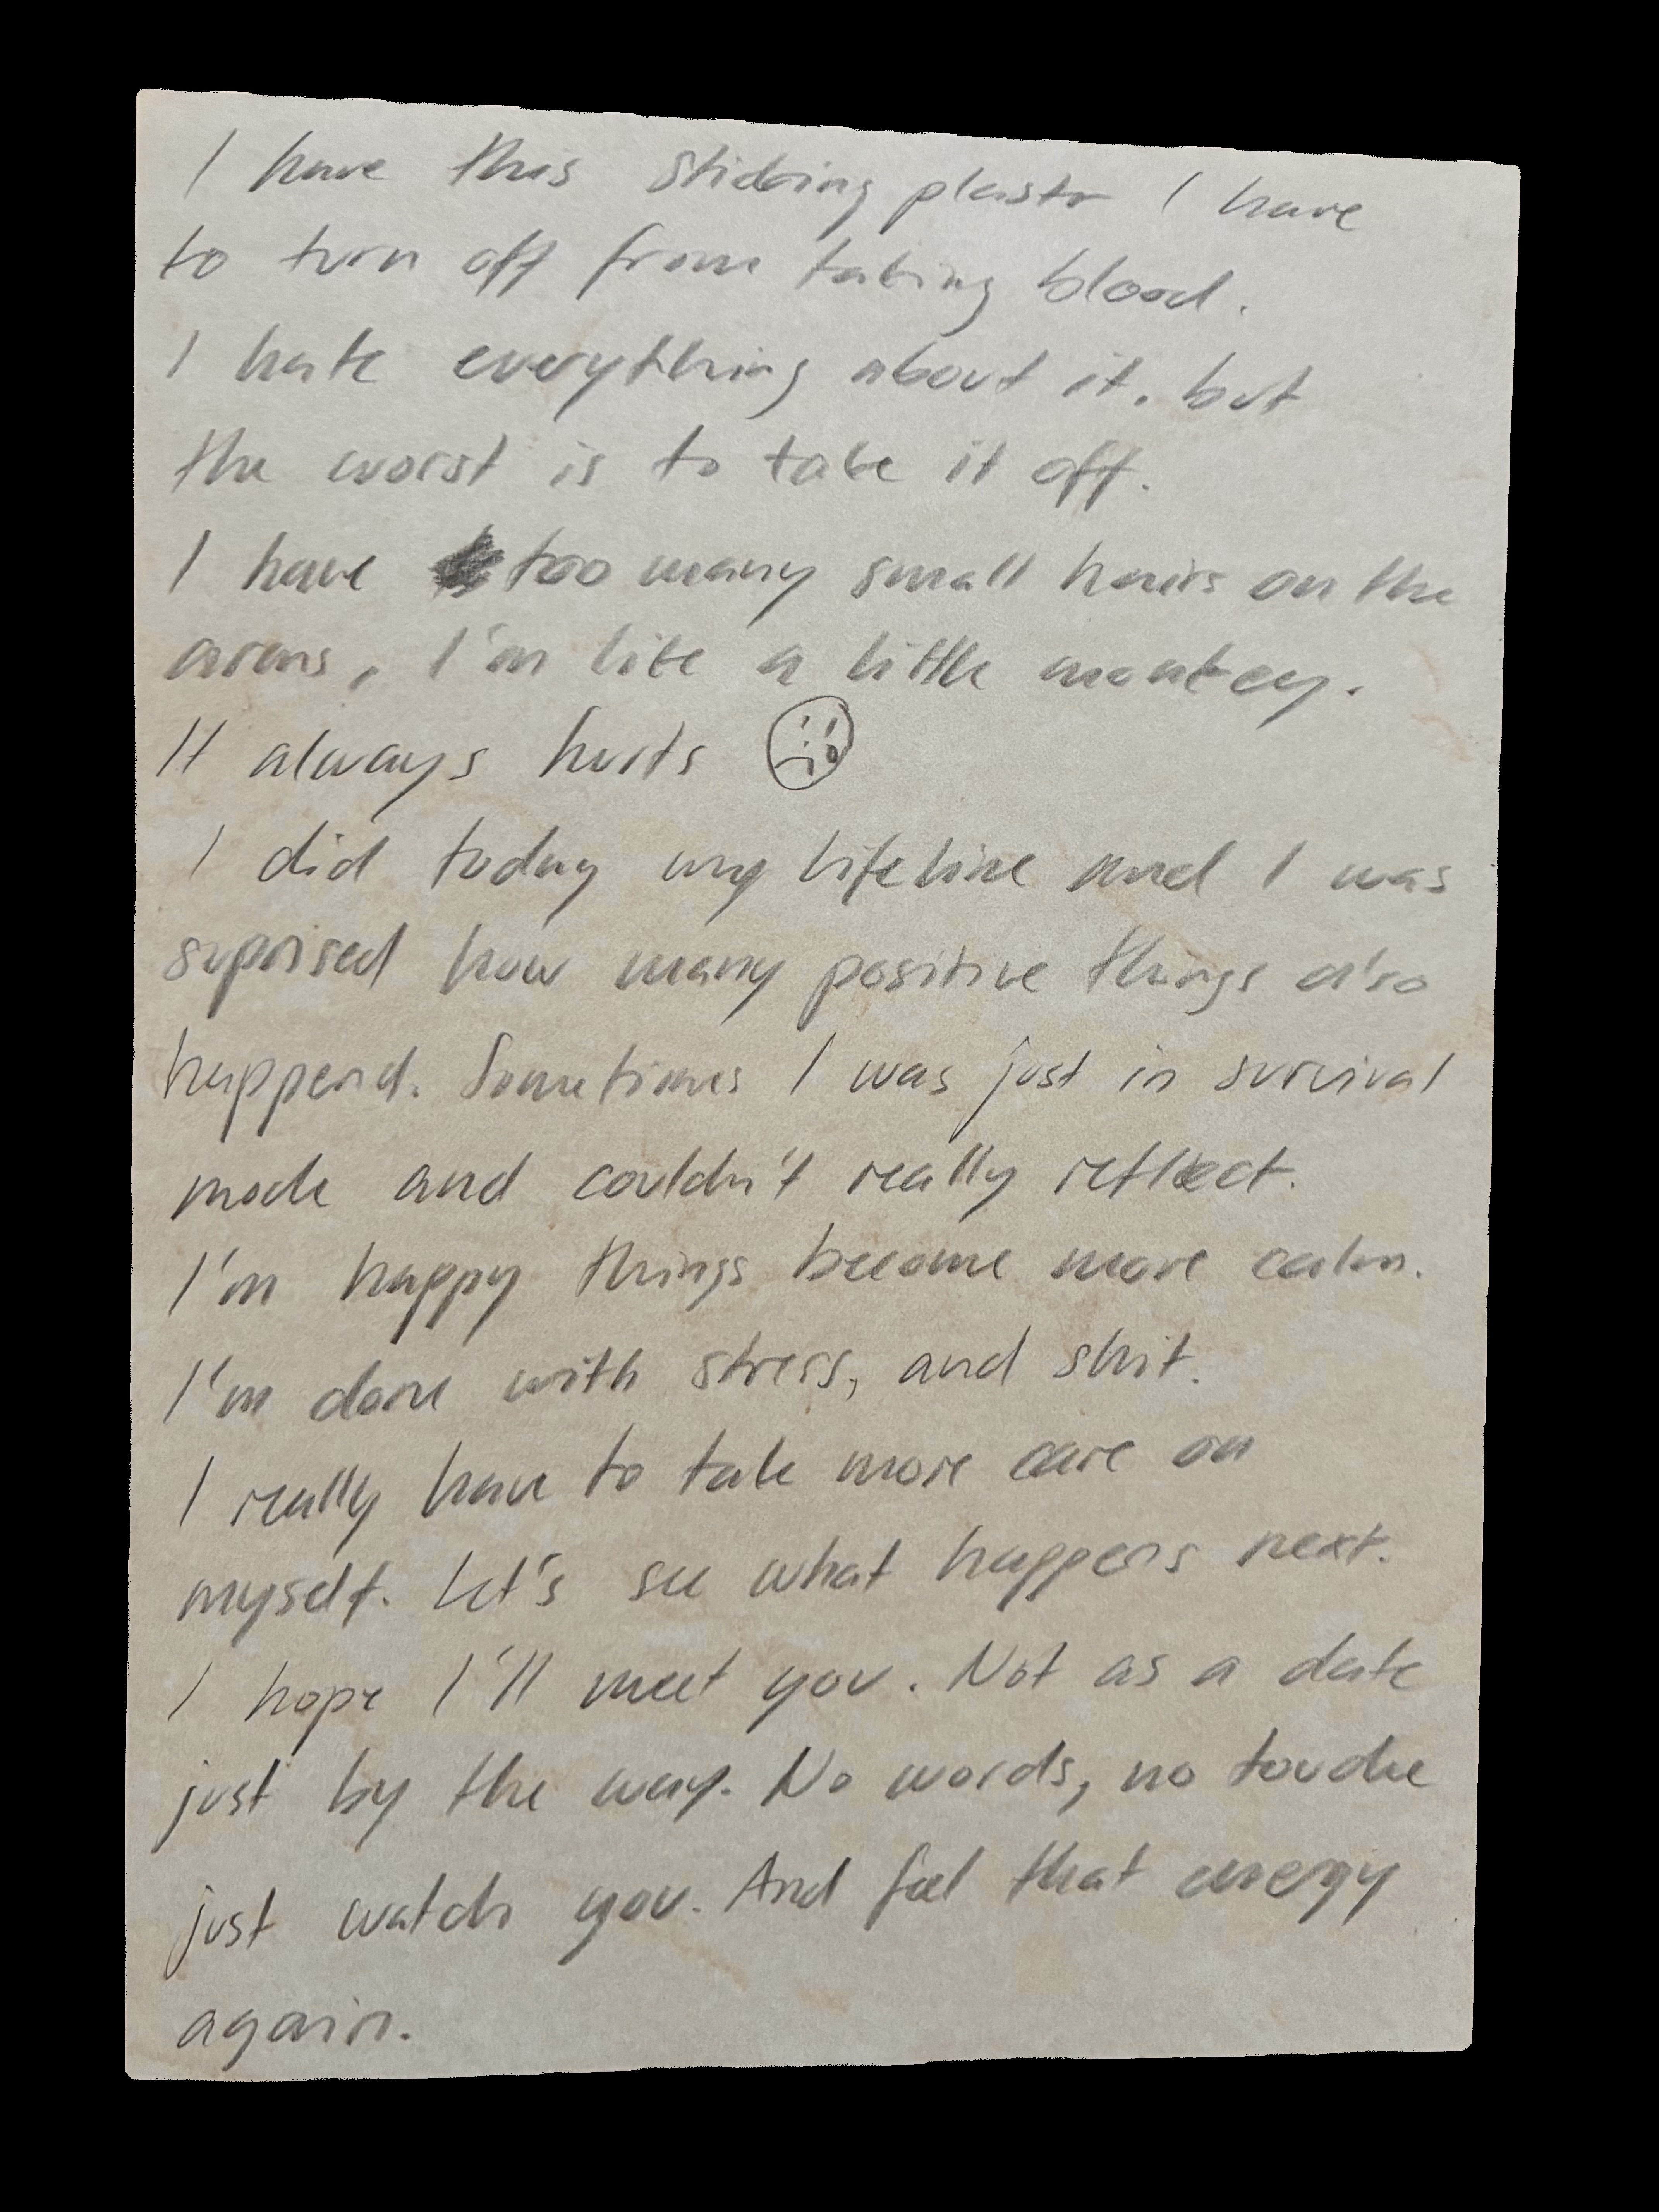 I have this sticking plastr I have
to turn off from taking blood.
I hate everything about it. but
the worst is to take it off.
I have too many small hairs on the
arms, I'm like a little monkey.
It always hurts
I did today my lifeline and I was
suprised how many positive things also
happend. Sometimes I was just in survival
mode and couldn't really reflect.
I'm happy things become more calm.
I'm done with stress, and shit.
I really have to take more care on
myself. Let's see what happens next.
I hope I'll meet you. Not as a date
just by the way. No words, no touche
just watch you. And feel that energy
again.